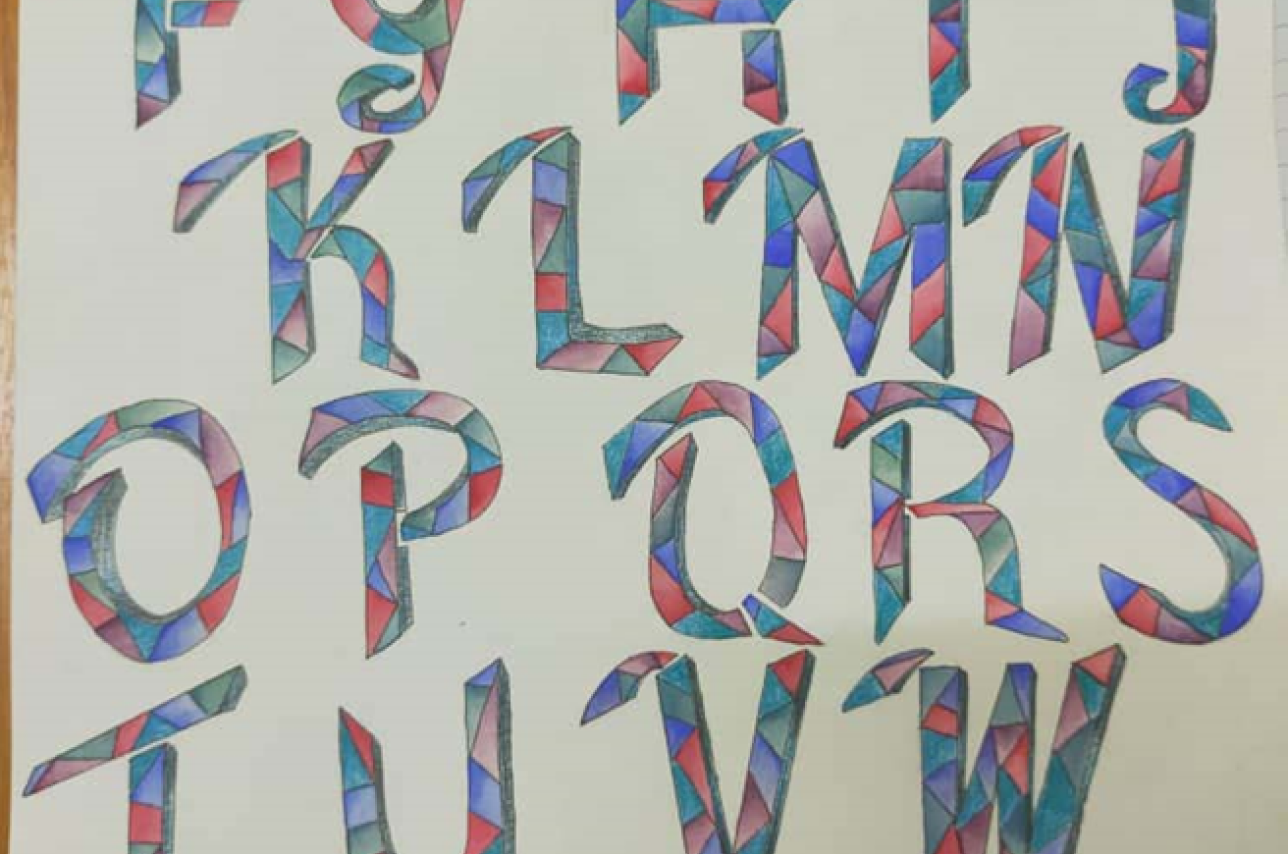 F g H I J
K L M N
O P Q R S
T U V W